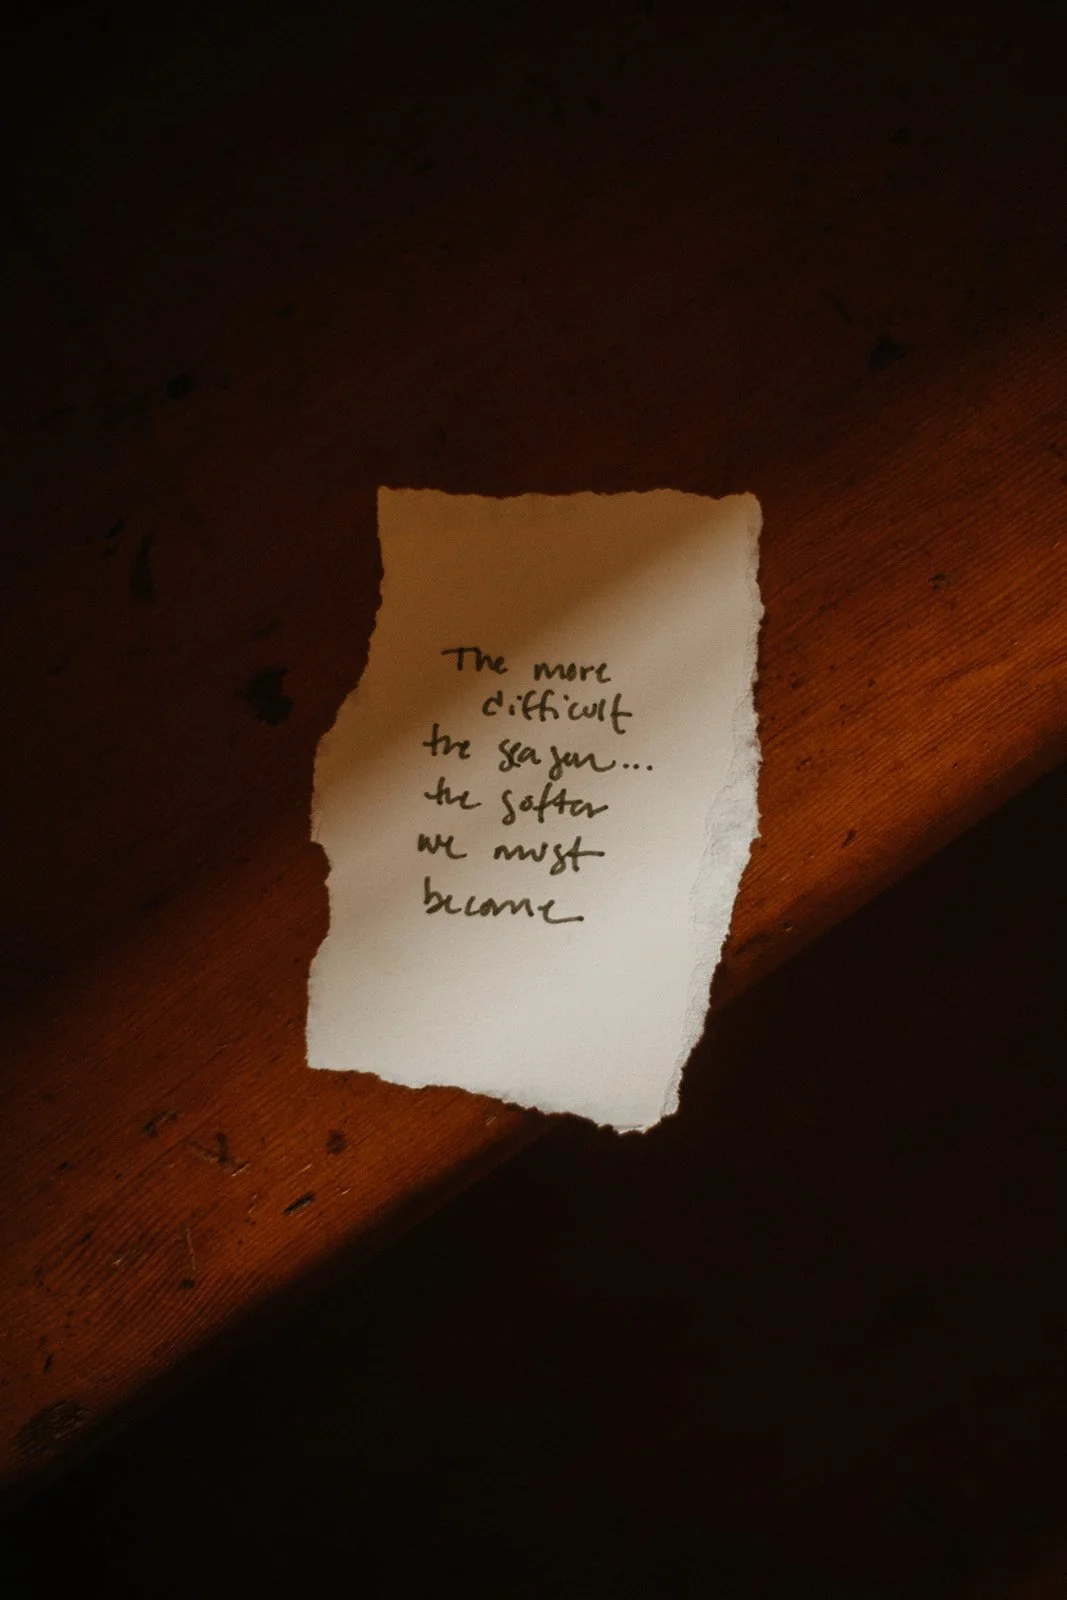 The more
difficult
the season...
the softer
we must
become